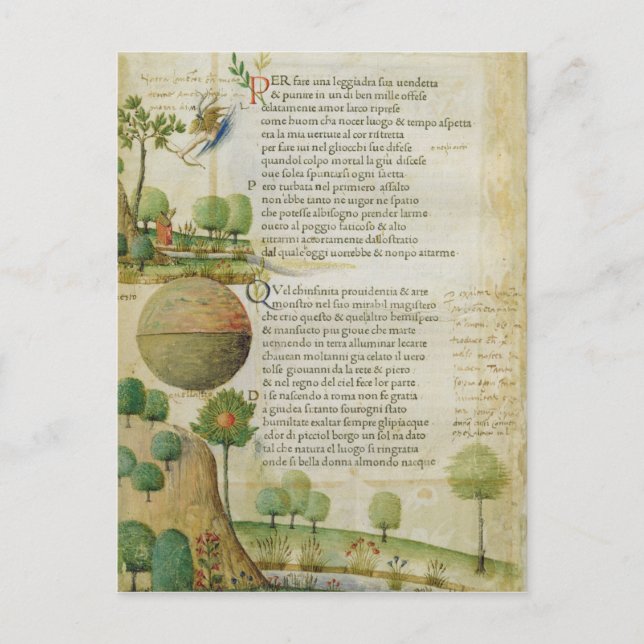 PER fare una leggiadra sua uendetta
& punire in un di ben mille offese
celatamente amor larco riprese
come huom cha nocer luogo & tempo aspetta
era la mia uertute al cor ristretta
per fare iui nel gliocchi sue difese
quandol colpo mortal la giu discese
oue solea spuntarsi ogni saetta
Pero turbata nel primiero assalto
non'ebbe tanto ne uigor ne spatio
che potesse albisogno prender larme
ouero al poggio faticoso & alto
ritrarmi accortamente dallostratio
dal quale oggi uorrebbe & nonpo aitarme
QVel chinfinita prouidentia & arte
monstro nel suo mirabil magistero
che crio questo & quelaltro hemispero
& mansueto piu gioue che marte
uennendo in terra alluminar lecarte
chauean moltanni gia celato il uero
tolse giouanni da la rete & piero
& nel regno del ciel fece lor parte
Di se nascendo a roma non fe gratia
a giudea si tanto sourogni stato
humiltate exaltar sempre glipiacque
edor di picciol borgo un sol na dato
tal che natura el luogo si ringratia
onde si bella donna almondo nacque